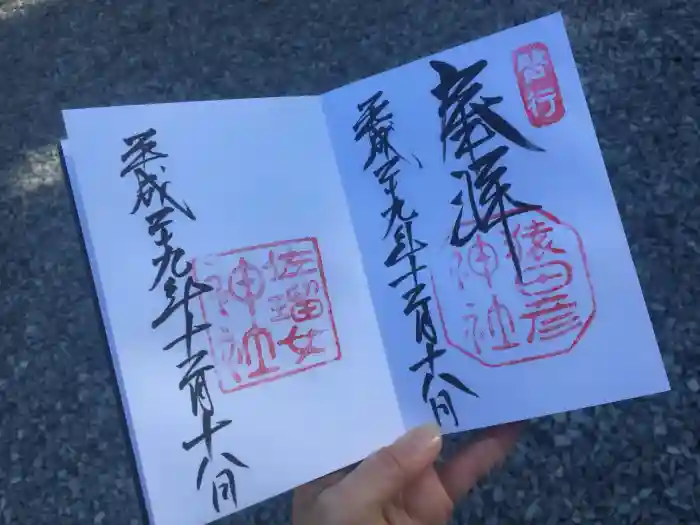 啓行
奉拝
猿田彦
神社
平成二十九年十二月十八日
佐瑠女
神社
平成二十九年十二月十八日